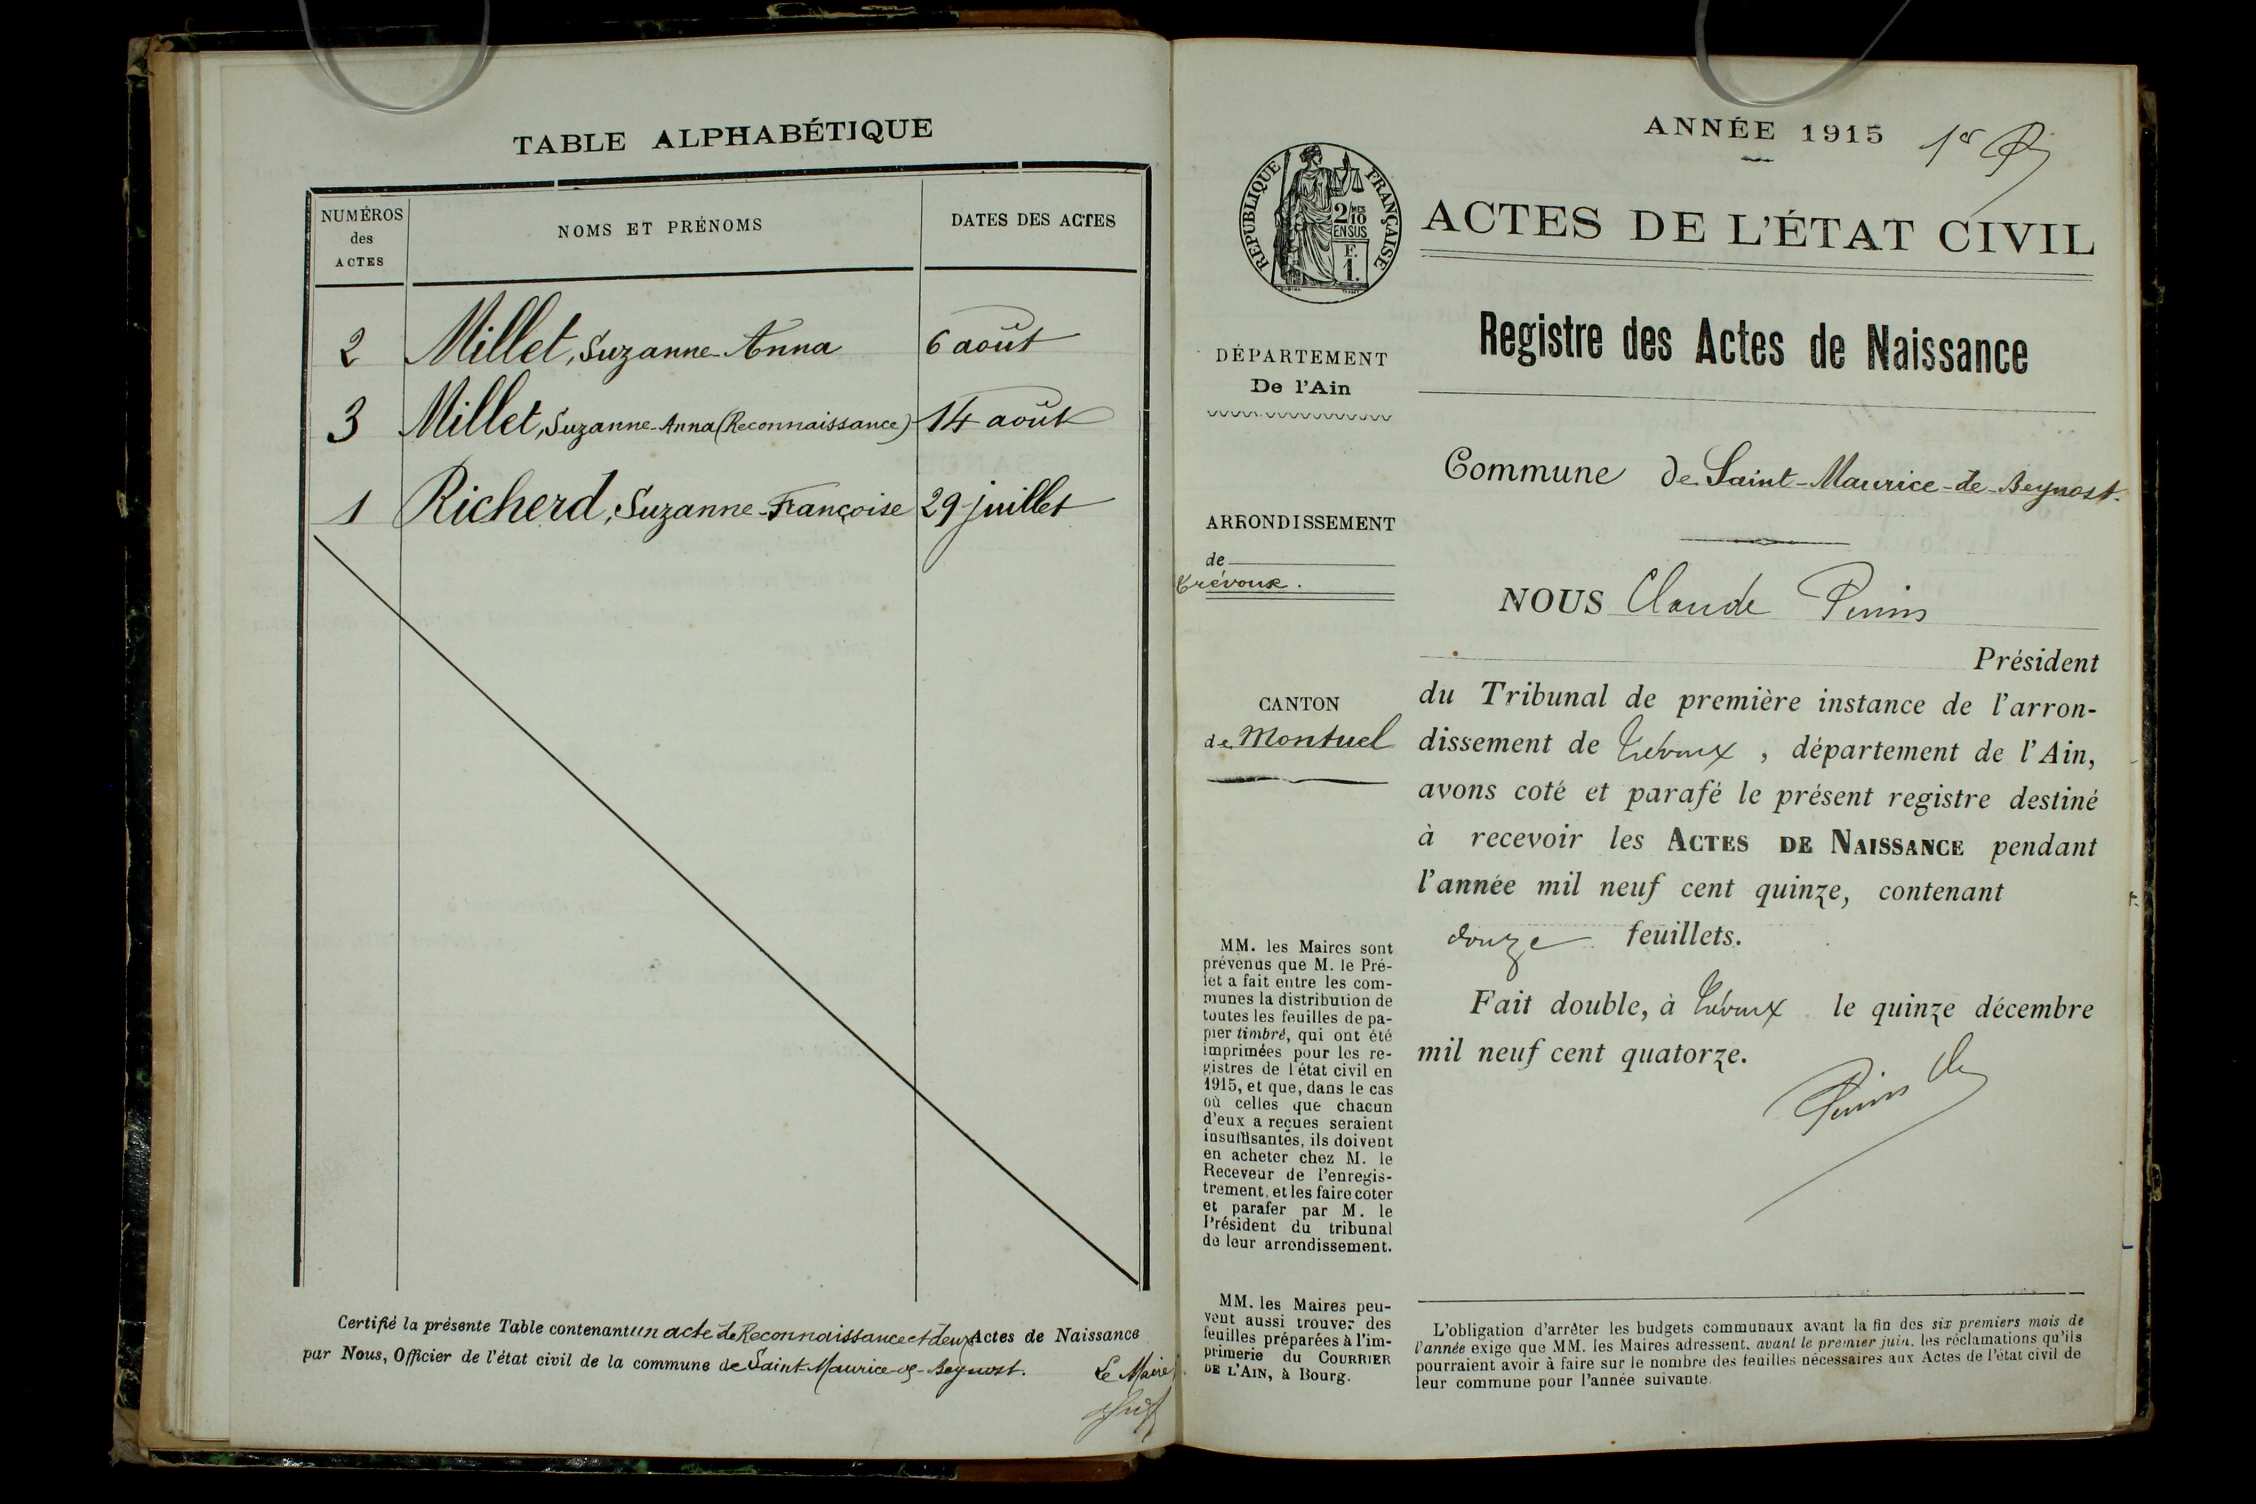 TABLE ALPHABÉTIQUE
NUMÉROS
des
ACTES
NOMS ET PRÉNOMS
DATES DES ACTES
2 Millet, Suzanne-Anna 6 août
3 Millet, Suzanne-Anna (Reconnaissance) 14 août
1 Richerd, Suzanne-Françoise 29 juillet
Certifié la présente Table contenant un acte de Reconnaissance et deux Actes de Naissance
par Nous, Officier de l'état civil de la commune de Saint-Maurice-de-Beynost.
Le Maire
ANNÉE 1915
1er
RÉPUBLIQUE FRANÇAISE
2/10 MES
EN SUS
F.
1.
ACTES DE L'ÉTAT CIVIL
Registre des Actes de Naissance
DÉPARTEMENT
De l'Ain
Commune de Saint-Maurice-de-Beynost.
ARRONDISSEMENT
de
Trévoux.
CANTON
de Montuel
MM. les Maires sont
prévenus que M. le Pré-
fet a fait entre les com-
munes la distribution de
toutes les feuilles de pa-
pier timbré, qui ont été
imprimées pour les re-
gistres de l'état civil en
1915, et que, dans le cas
où celles que chacun
d'eux a reçues seraient
insuffisantes, ils doivent
en acheter chez M. le
Receveur de l'enregis-
trement, et les faire coter
et parafer par M. le
Président du tribunal
de leur arrondissement.
MM. les Maires peu-
vent aussi trouver des
feuilles préparées à l'im-
primerie du COURRIER
DE L'AIN, à Bourg.
NOUS Claude
Président
du Tribunal de première instance de l'arron-
dissement de Trévoux, département de l'Ain,
avons coté et parafé le présent registre destiné
à recevoir les ACTES DE NAISSANCE pendant
l'année mil neuf cent quinze, contenant
douze feuillets.
Fait double, à Trévoux le quinze décembre
mil neuf cent quatorze.
L'obligation d'arrêter les budgets communaux avant la fin des six premiers mois de
l'année exige que MM. les Maires adressent, avant le premier juin, les réclamations qu'ils
pourraient avoir à faire sur le nombre des feuilles nécessaires aux Actes de l'état civil de
leur commune pour l'année suivante.